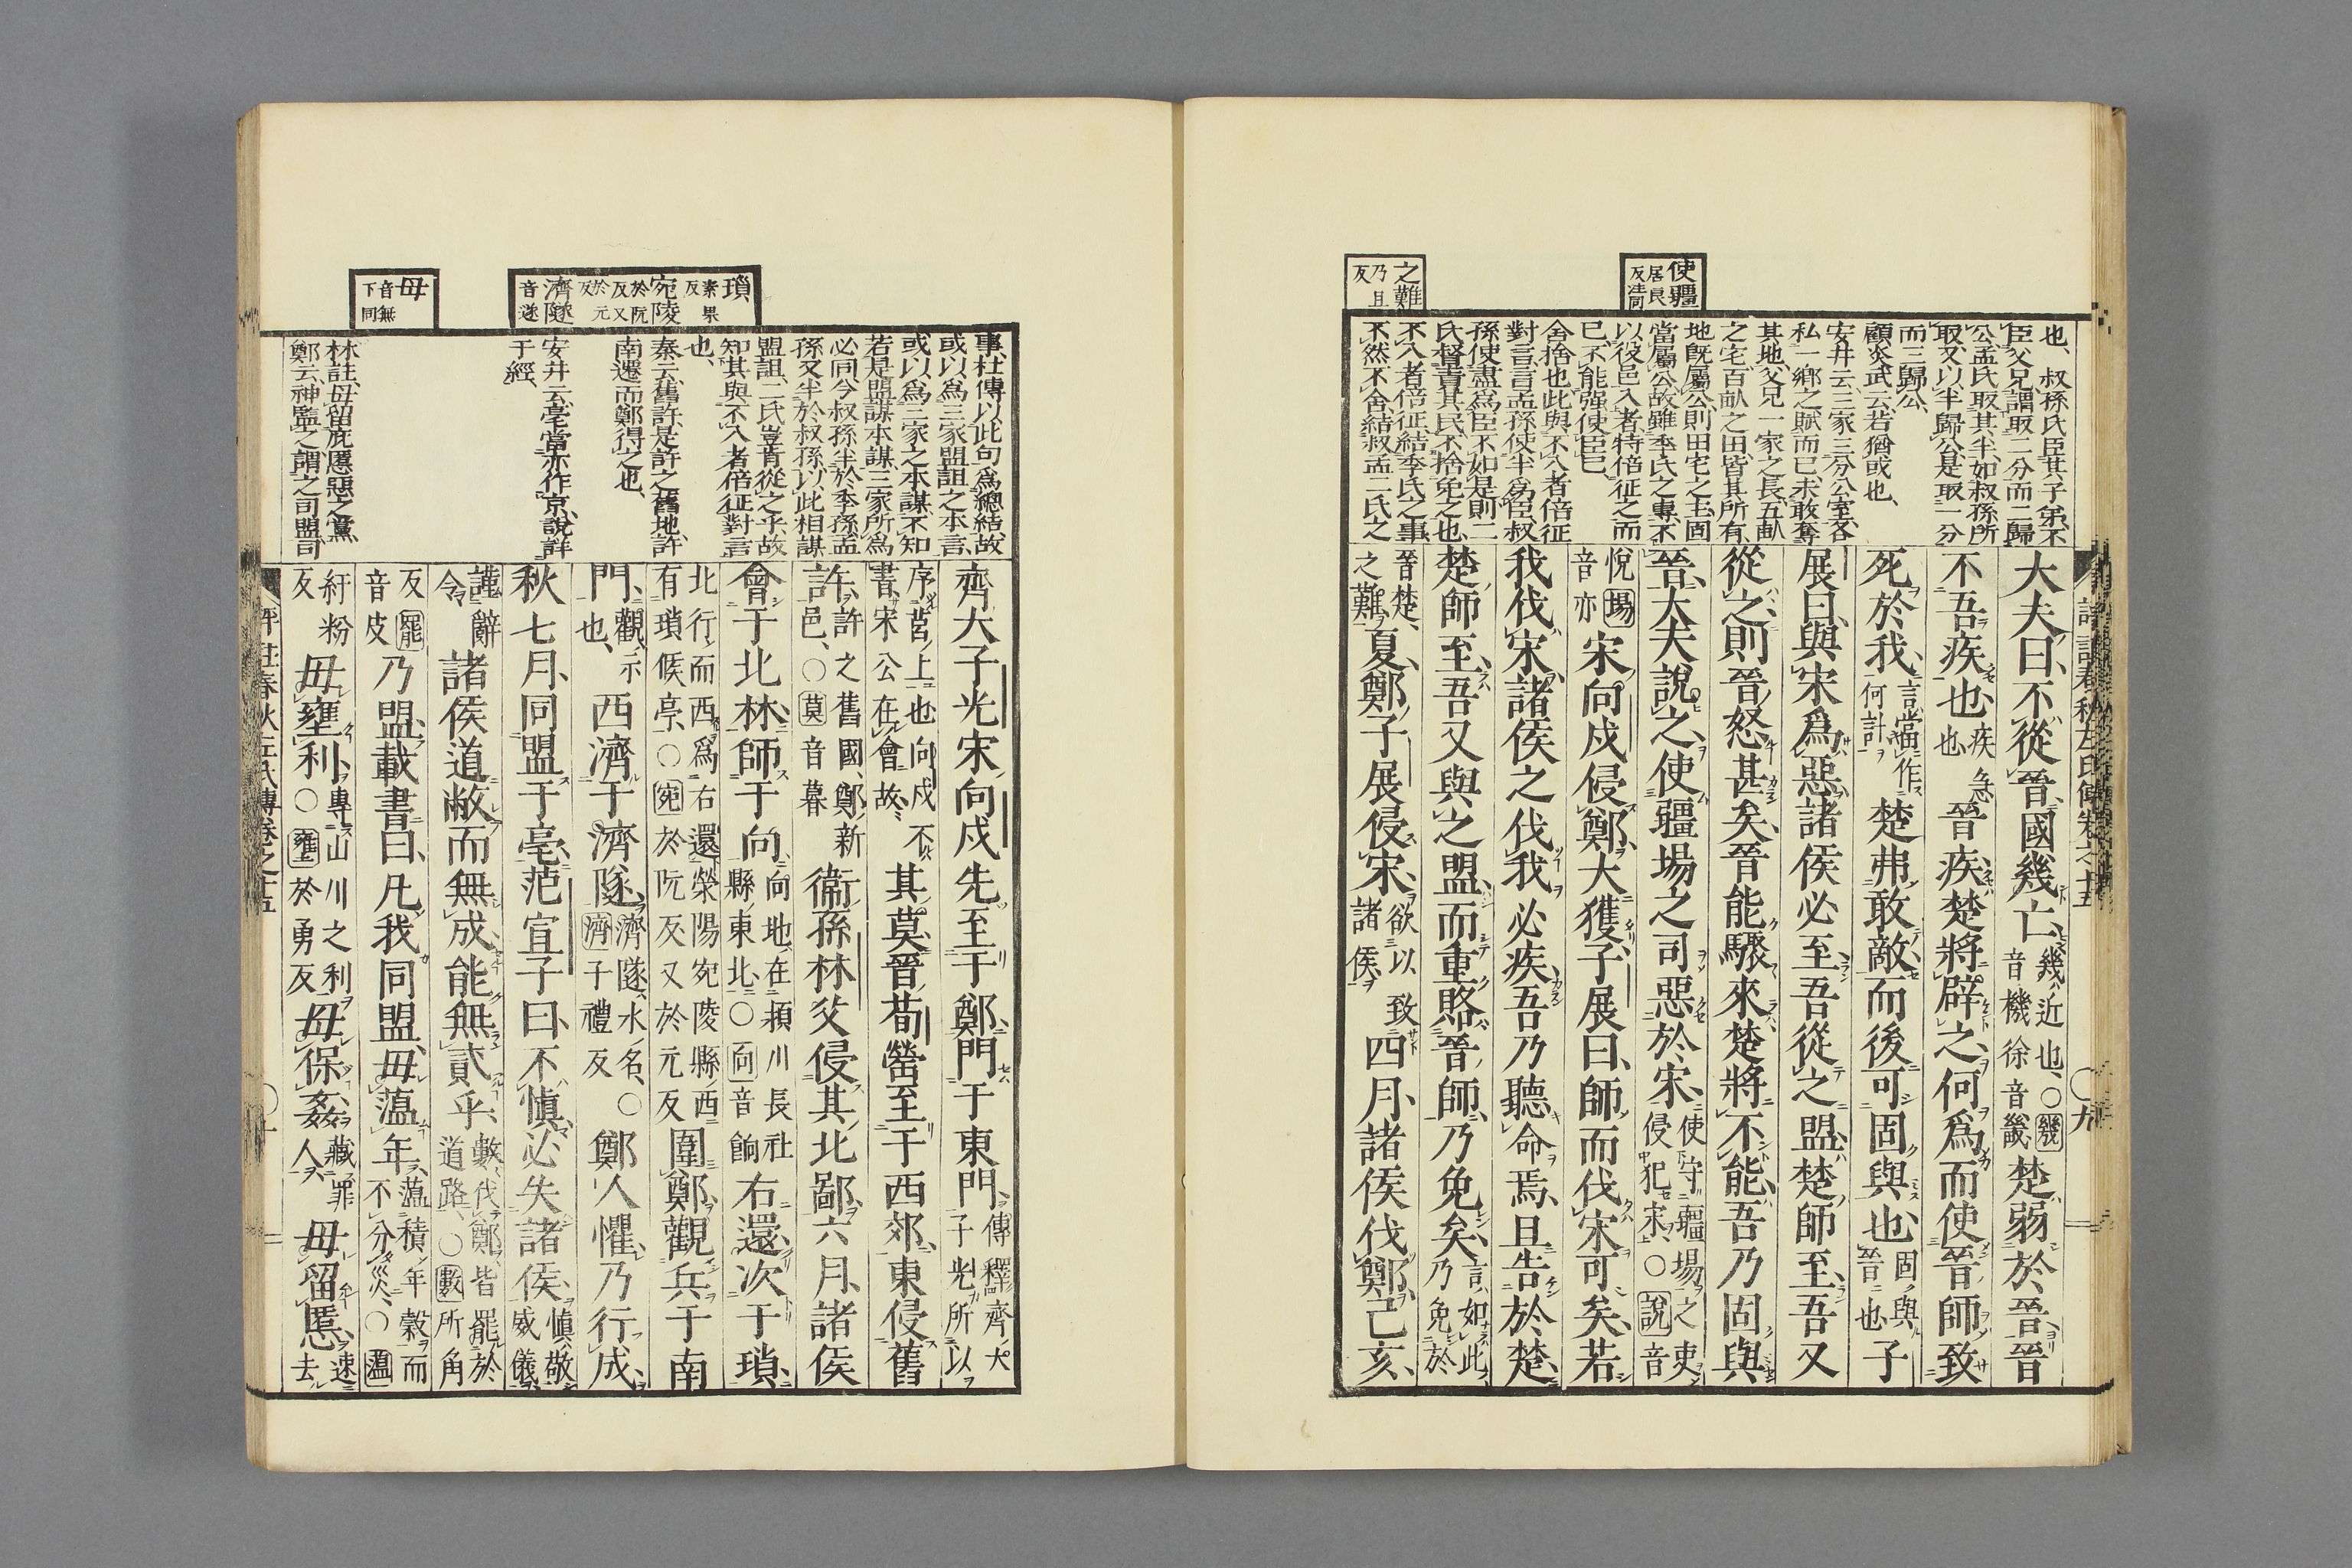 使疆
居良
反注同
之難
乃且
反
也、叔孫氏臣其子弟不
臣父兄謂取二分而二歸
公孟氏取其半如叔孫所
取又以半歸公是取一分
而三歸公、
顧炎武云若猶或也、
安井云三家三分公室各
私一鄉之賦而已未敢奪
其地父兄一家之長五畝
之宅百畝之田皆其所有
地既屬公則田宅之主固
當屬公故雖季氏之專不
以役邑入者特倍征之而
已不能强使臣已
舍捨也此與不入者倍征
對言言孟孫使半爲臣叔
孫使盡爲臣不如是則二
氏督責其民不捨免之也
不入者倍征結季氏之事
不然不舍結叔孟二氏之
大夫曰、不從晉國幾亡、
幾近也、○幾
音機徐音畿
楚弱於晉、晉
不吾疾也、
疾急
也
晉疾楚將辟之、何爲而使晉師致
死於我、
言當作
何計
楚弗敢敵而後可固與也、
固與
晉也
子
展曰、與宋爲惡諸侯必至吾從之盟、楚師至吾又
從之、則晉怒甚矣、晉能驟來楚將不能、吾乃固與
晉、大夫說之、使疆埸之司惡於宋、
使守疆埸之吏
侵犯宋○說音
悅埸
音亦
宋向戌侵鄭、大獲子展曰、師而伐宋可矣、若
我伐宋、諸侯之伐我必疾吾乃聽命焉、且告於楚、
楚師至、吾又與之盟、而重賂晉師、乃免矣、
言如此
乃免於
晉楚、
之難
夏、鄭子展侵宋、
欲以致
諸侯
四月、諸侯伐鄭、己亥、
詳註春秋左氏傳卷之十五
九
瑣
素果
反
宛陵
於阮
反又
於元
反
濟隧
音遂
毋
音無
下同
事杜傳以此句爲總結故
或以爲三家盟詛之本言
或以爲三家之本謀不知
若是盟謀本謀三家所爲
必同今叔孫半於季孫孟
孫又半於叔孫以此相謀
盟詛二氏豈肯從之乎故
知其與不入者倍征對言
也、
秦云舊許是許之舊地許
南遷而鄭得之也、
安井云亳當亦作京說詳
于經、
林註毋留庇慝惡之黨
鄭云神監之謂之司盟司
齊大子光宋向戌先至于鄭、門于東門、
傳釋齊大
子光所以
序莒上也向戌不
書宋公在會故
其莫、晉荀罃至于西郊、東侵舊
許、
許之舊國、鄭新
邑、○莫音暮
衞孫林父侵其北鄙、六月、諸侯
會于北林師于向、
向地在潁川長社
縣東北○向音餉
右還、次于瑣、
北行而西爲右還滎陽宛陵縣西
有瑣侯亭、○宛於阮反又於元反
圍鄭觀兵于南
門、
觀示
也、
西濟于濟隧、
濟隧水名、○
濟子禮反
鄭人懼、乃行成、
秋七月、同盟于亳、范宣子曰、不愼、必失諸侯、
愼敬
威儀
謹辭
令
諸侯道敝而無成、能無貳乎、
數伐鄭、皆罷於
道路、○數所角
反罷
音皮
乃盟、載書曰、凡我同盟、毋薀年、
薀積年穀而
不分災、○薀
紆粉
反
毋壅利、
專山川之利
○壅於勇反
毋保姦、
藏罪
人
毋留慝、
速
去
評註春秋左氏傳卷之十五
十